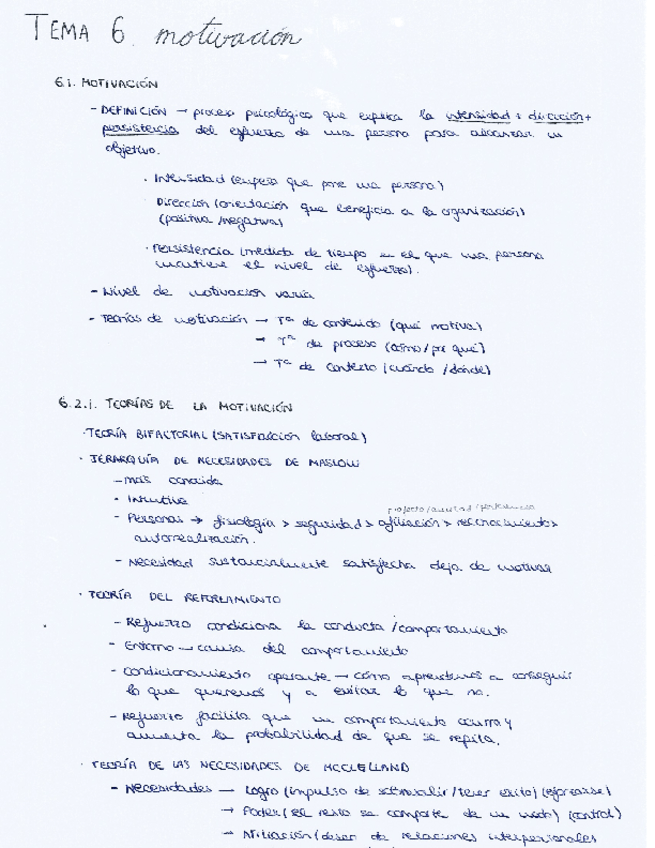 TEMA 6. motivación
6.1. MOTIVACIÓN
- DEFINICIÓN → proceso psicológico que explica la intensidad + dirección +
persistencia del esfuerzo de una persona para alcanzar un
objetivo.
· Intensidad (empeño que pone una persona)
Dirección (orientación que beneficia a la organización)
(positiva/negativa)
· Persistencia (medida de tiempo en el que una persona
mantiene el nivel de esfuerzo).
- Nivel de motivación varía
- Teorías de motivación → Tª de contenido (qué motiva)
→ Tª de proceso (cómo/por qué)
→ Tª de contexto (cuándo/dónde)
6.2.1. TEORÍAS DE LA MOTIVACIÓN
· TEORÍA BIFACTORIAL (SATISFacción laboral)
· JERARQUÍA DE NECESIDADES DE MASLOW
- más conocida
· Intuitiva
- Personas → fisiología > seguridad > afiliación > reconocimiento >
autorrealización.
- Necesidad sustancialmente satisfecha deja de motivar
· TEORÍA DEL REFORZAMIENTO
- Refuerzo condiciona la conducta/comportamiento
- Entorno → causa del comportamiento
- Condicionamiento operante → cómo aprendemos a conseguir
lo que queremos y a evitar lo que no.
- Refuerzo facilita que un comportamiento ocurra y
aumenta la probabilidad de que se repita.
· TEORÍA DE LAS NECESIDADES DE MCCLELLAND
- Necesidades → Logro (impulso de sobresalir/tener éxito) (esforzarse)
→ Poder (el resto se comporte de un modo) (control)
→ Afiliación (deseo de relaciones interpersonales